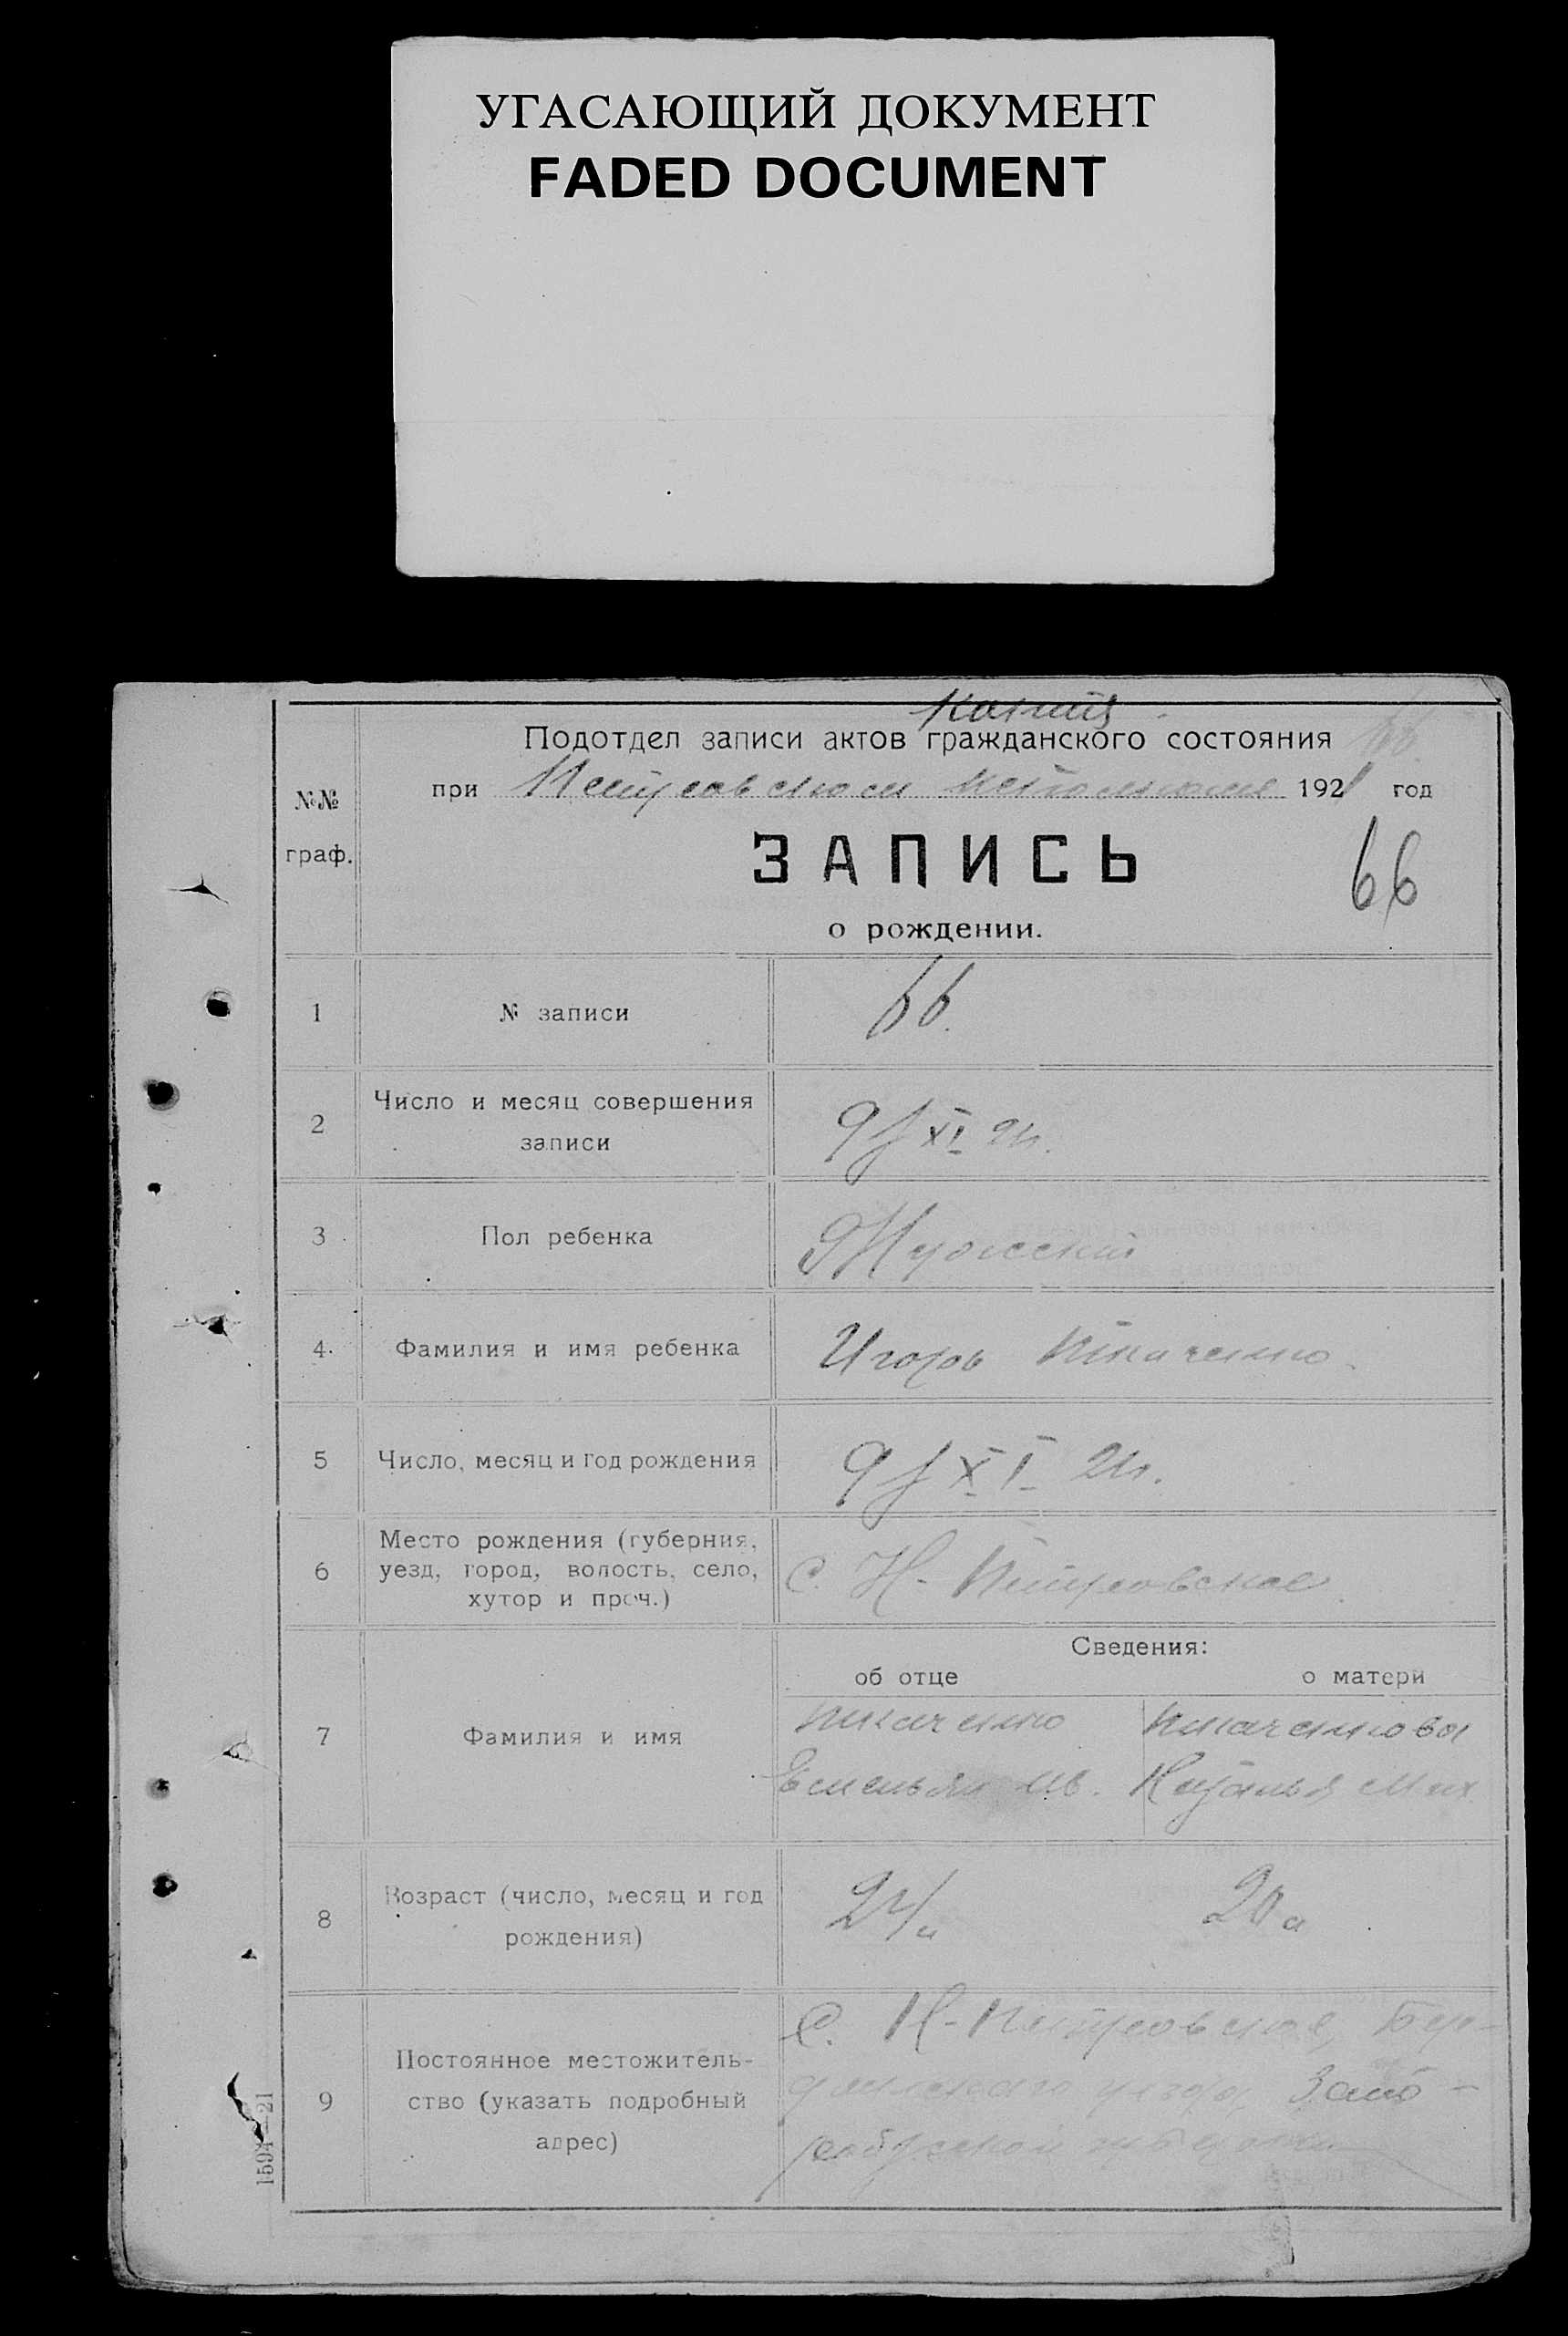 УГАСАЮЩИЙ ДОКУМЕНТ
FADED DOCUMENT
Копия
Подотдел записи актов гражданского состояния
при Петровском исполкоме 1921 год
№№
граф.
ЗАПИСЬ
66
о рождении.
1 № записи 66.
2 Число и месяц совершения
записи 9/XI 21г.
3 Пол ребенка Мужеский
4 Фамилия и имя ребенка Игорь Ткаченко.
5 Число, месяц и год рождения 9/XI 21г.
6 Место рождения (губерния,
уезд, город, волость, село,
хутор и проч.) с. Н-Петровское
Сведения:
об отце о матери
7 Фамилия и имя Ткаченко Ткаченкова
Емельян Ив. Наталья Мих
8 Возраст (число, месяц и год
рождения) 20
9 Постоянное местожитель-
ство (указать подробный
адрес)
с. Н-Петровское, Бер-
дянского
1594—21